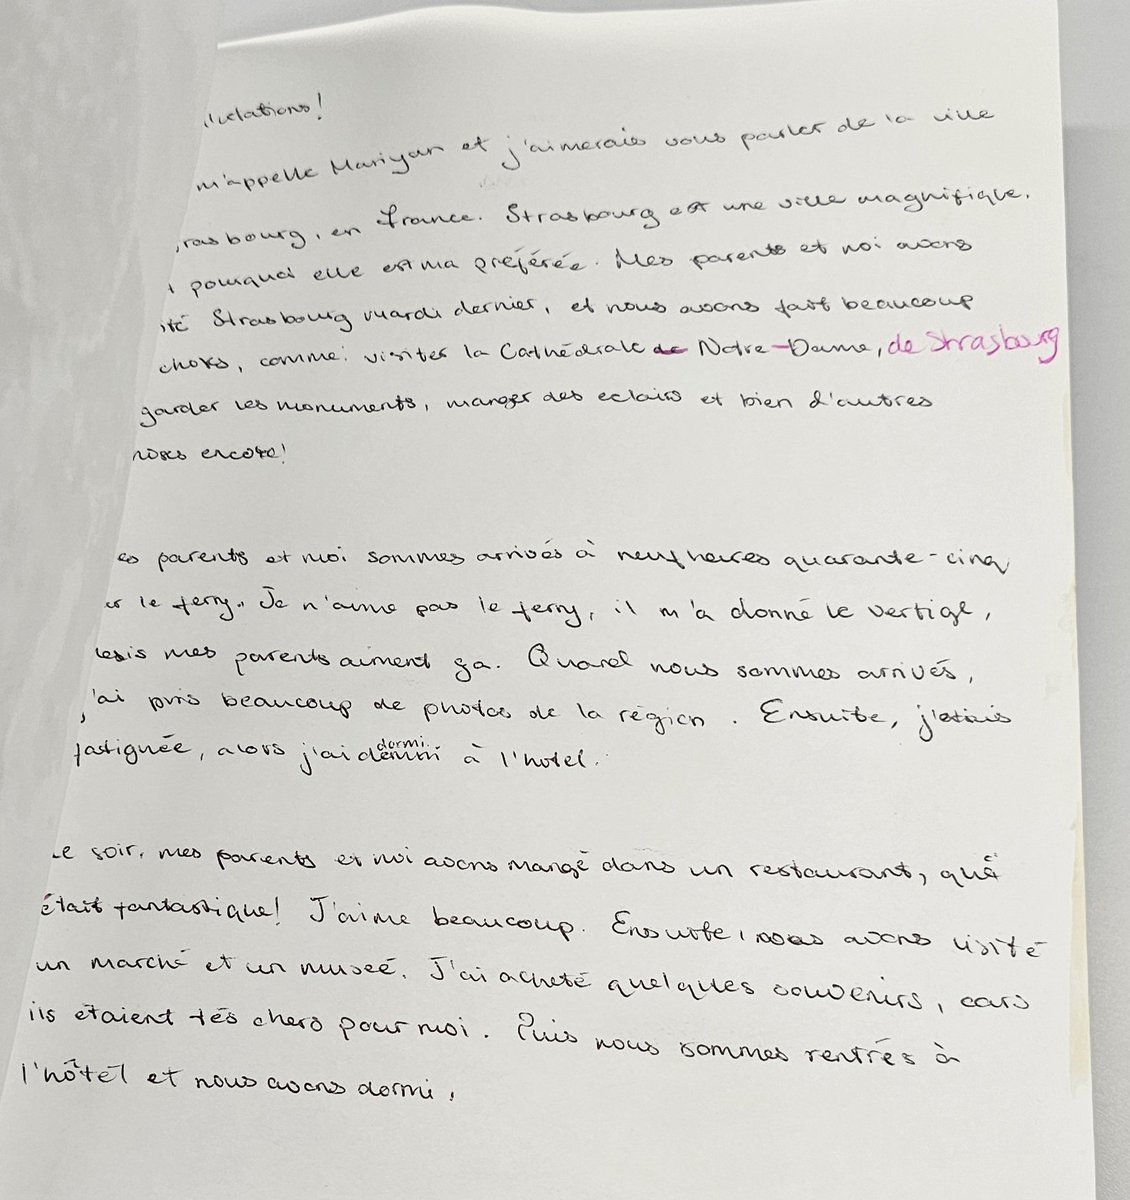 lutations!
m'appelle Mariyan et j'aimerais vous parler de la ville
rasbourg, en France. Strasbourg est une ville magnifique.
pourquoi elle est ma préférée. Mes parents et moi avons
ité Strasbourg mardi dernier, et nous avons fait beaucoup
choses, comme: visiter la Cathédrale Notre-Dame, de Strasbourg
garder les monuments, manger des eclairs et bien d'autres
hoses encore!
es parents et moi sommes arrivés à neuf heures quarante-cinq
le ferry. Je n'aime pas le ferry, il m'a donné le vertige,
mes parents aiment ça. Quand nous sommes arrivés,
j'ai pris beaucoup de photos de la région. Ensuite, j'etais
fastignée, alors j'ai dormi à l'hotel.
Le soir, mes parents et moi avons mangé dans un restaurant,
était fantastique! J'aime beaucoup. Ensuite, nous avons visité
un marché et un museé. J'ai acheté quelques souvenirs, cars
ils étaient tés chers pour moi. Puis nous sommes rentrés à
l'hôtel et nous avons dormi.